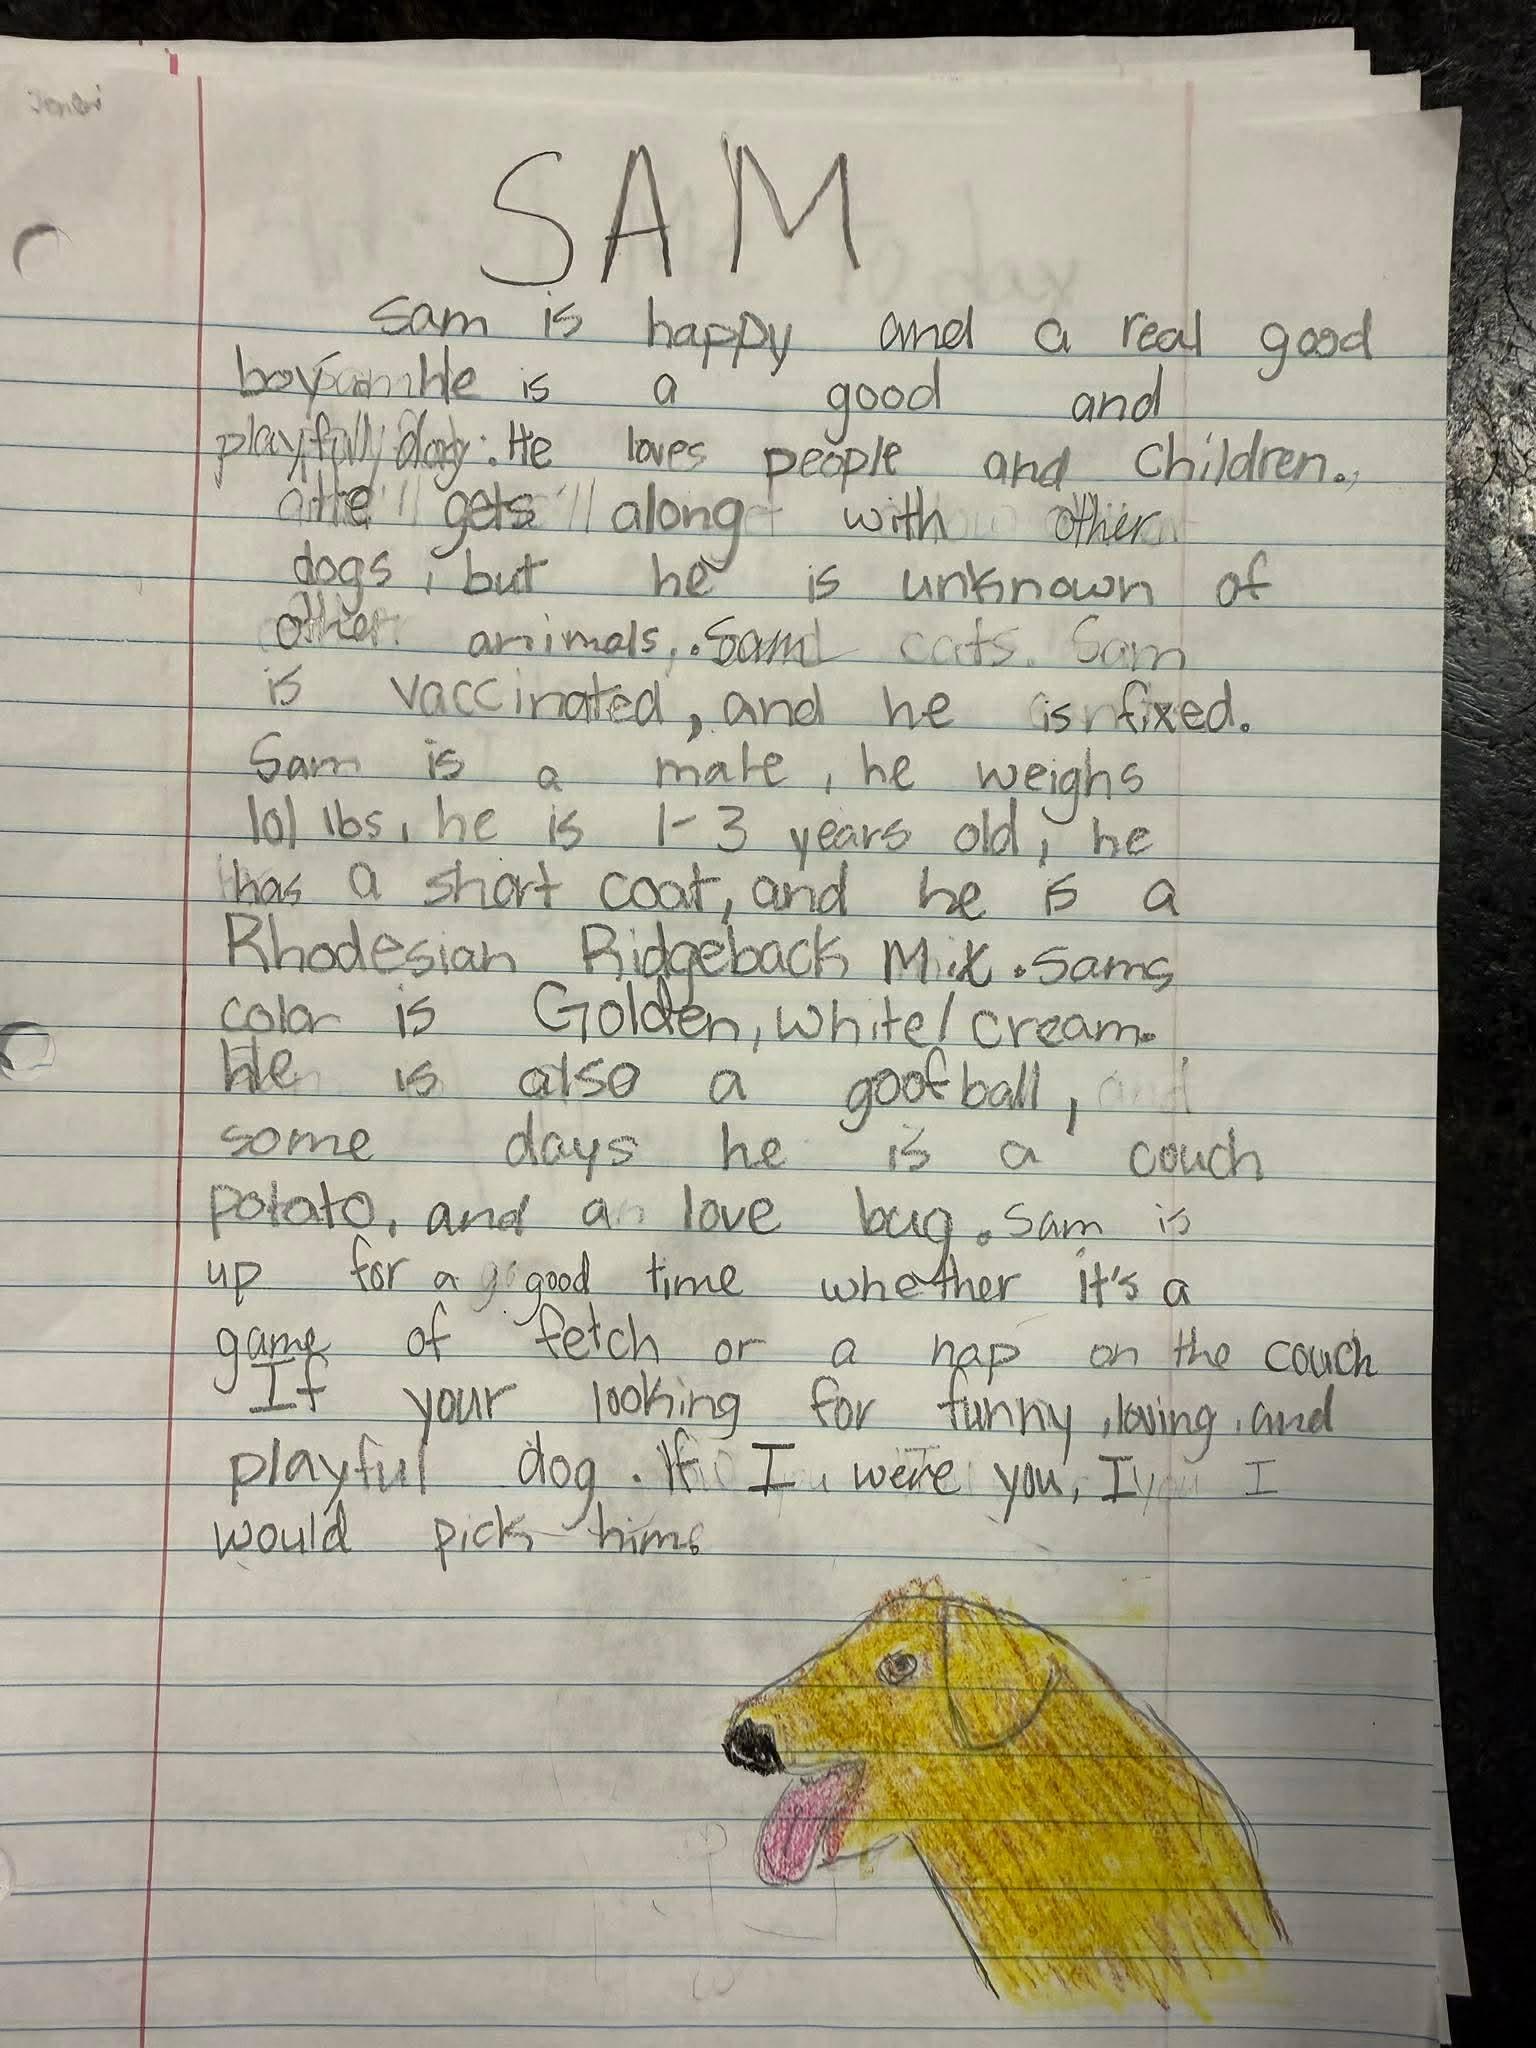 SAM
Sam is happy and a real good
boy He is a good and
playful dog. He loves people and children.
He gets along with other
dogs, but he is unknown of
other animals. Sam
is vaccinated, and he is fixed.
Sam is a male, he weighs
101 lbs, he is 1-3 years old, he
has a short coat, and he is a
Rhodesian Ridgeback Mix. Sams
color is Golden, White/cream.
He is also a goofball,
some days he is a couch
potato, and a love bug. Sam is
up for a good time whether it's a
game of fetch or a nap on the couch
If your looking for funny, loving, and
playful dog. If I were you, I
would pick him.